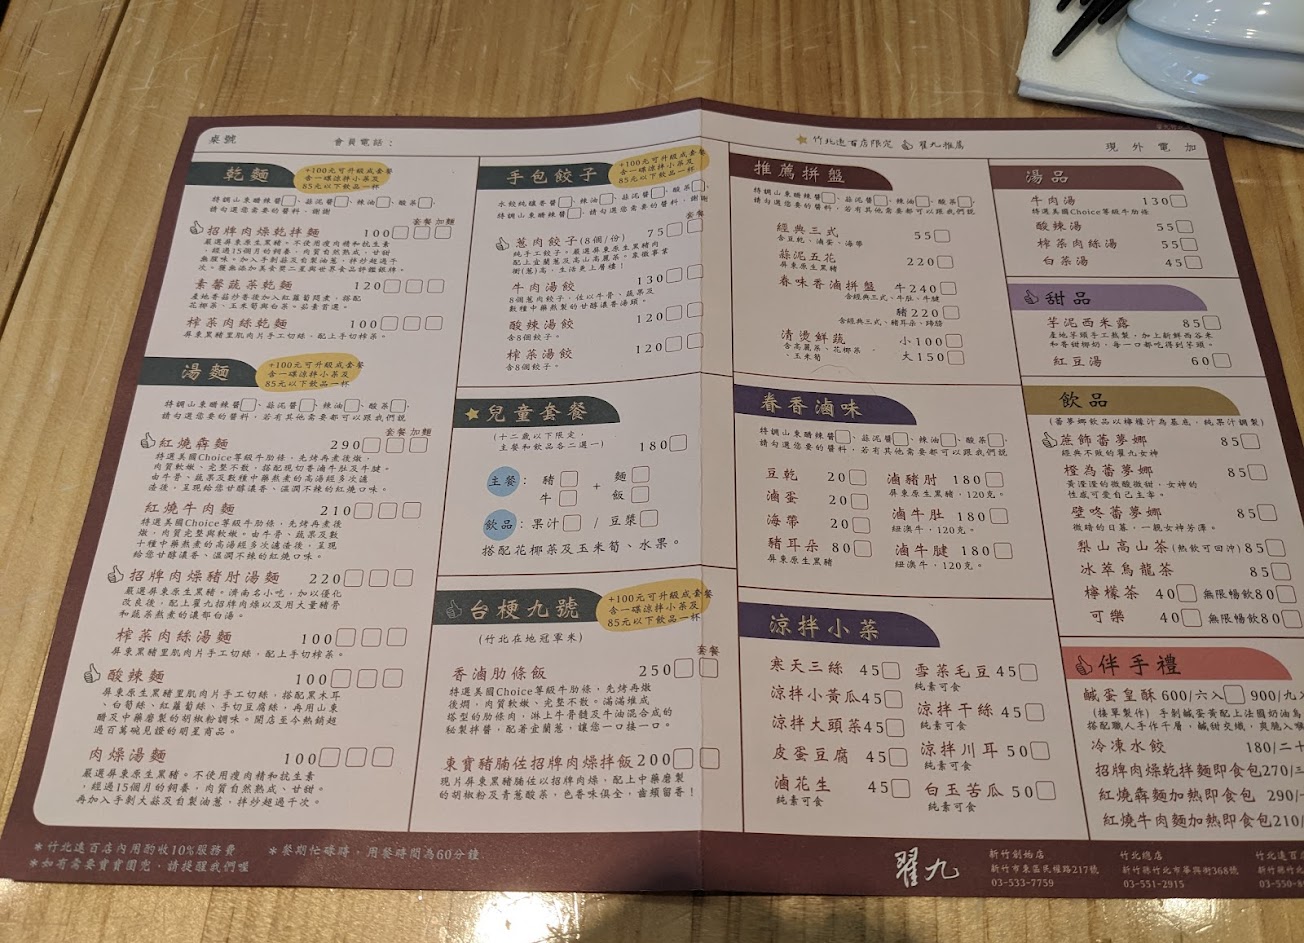 桌號
會員電話：
竹北遠百店限定
翟九推薦
現 外 電 加
乾麵
+100元可升級成套餐
含一碟涼拌小菜及
85元以下飲品一杯
特調山東勝辣醬、蒜泥醬、辣油、酸菜，
請勾選您需要的醬料，謝謝
套餐 加麵
招牌肉燥乾拌麵 100
嚴選屏東原生黑豬。不使用瘦肉精和抗生素
，經過15個月的飼養，肉質自然熟成、甘甜
無腥味。加入手剁蒜及自製油蔥，拌炒超過千
次。獲無添加美食獎二星與世界食品評鑑銀牌。
素馨蔬菜乾麵 120
產地香菇炒香後加入紅蘿蔔悶煮，搭配
花椰菜、玉米筍與白菜。茹素首選。
榨菜肉絲乾麵 100
屏東黑豬里肌肉片手工切絲，配上手切榨菜。
湯麵
+100元可升級成套餐
含一碟涼拌小菜及
85元以下飲品一杯
特調山東勝辣醬、蒜泥醬、辣油、酸菜，
請勾選您要的醬料，若有其他需要都可以跟我們說
套餐 加麵
紅燒犇麵 290
特選美國Choice等級牛肋條，先烤再煮後燉，
肉質軟嫩、完整不散，搭配現切香滷牛肚及牛腱。
由牛骨、蔬果及數種中藥熬煮的高湯經多次濾
渣後，呈現給您甘醇濃香、溫潤不辣的紅燒口味。
紅燒牛肉麵 210
特選美國Choice等級牛肋條，先烤再煮後
燉，肉質完整與軟嫩。由牛骨、蔬果及數
十種中藥熬煮的高湯經多次濾渣後，呈現
給您甘醇濃香、溫潤不辣的紅燒口味。
招牌肉燥豬肘湯麵 220
嚴選屏東原生黑豬。濟南名小吃，加以優化
改良後，配上翟九招牌肉燥以及用大量豬骨
和蔬菜熬煮的濃郁白湯。
榨菜肉絲湯麵 100
屏東黑豬里肌肉片手工切絲，配上手切榨菜。
酸辣麵 100
屏東原生黑豬里肌肉片手工切絲，搭配黑木耳
、白筍絲、紅蘿蔔絲、手切豆腐絲，再用山東
醋及中藥磨製的胡椒粉調味。開店至今熱銷超
過百萬碗見證的明星商品。
肉燥湯麵 100
嚴選屏東原生黑豬。不使用瘦肉精和抗生素
，經過15個月的飼養，肉質自然熟成、甘甜。
再加入手剁大蒜及自製油蔥，拌炒超過千次。
手包餃子
+100元可升級成套餐
含一碟涼拌小菜及
85元以下飲品一杯
水餃純釀香醬、辣油、蒜泥醬、酸菜、
特調山東勝辣醬，請勾選您需要的醬料，謝謝
套餐
蔥肉餃子(8個/份) 75
純手工餃子。嚴選屏東原生黑豬肉
配上宜蘭蔥及高山高麗菜。象徵事業
衝(蔥)高，生活更上層樓！
牛肉湯餃 130
8個蔥肉餃子，佐以牛骨、蔬果及
數種中藥熬製的甘醇濃香湯頭。
酸辣湯餃 120
含8個餃子。
榨菜湯餃 120
含8個餃子。
兒童套餐
(十二歲以下限定，
主餐和飲品各二選一) 180
主餐：豬 + 麵
牛 飯
飲品：果汁 / 豆漿
搭配花椰菜及玉米筍、水果。
台梗九號
+100元可升級成套餐
含一碟涼拌小菜及
85元以下飲品一杯
(竹北在地冠軍米)
套餐
香滷肋條飯 250
特選美國Choice等級牛肋條，先烤再燉
後燜，肉質軟嫩、完整不散。滿滿堆成
搭型的肋條肉，淋上牛骨髓及牛油混合成的
秘製拌醬，配著宜蘭蔥，讓您一口接一口。
東寶豬腩佐招牌肉燥拌飯200
現片屏東黑豬腩佐以招牌肉燥，配上中藥磨製
的胡椒粉及青蔥酸菜，色香味俱全，齒頰留香！
推薦拼盤
特調山東勝辣醬、蒜泥醬、辣油、酸菜，
請勾選您要的醬料，若有其他需要都可以跟我們說
經典三式 55
含豆乾、滷蛋、海帶
蒜泥五花 220
屏東原生黑豬
眷味香滷拼盤 牛240
含經典三式、牛肚、牛腱
豬220
含經典三式、豬耳朵、蹄膀
清燙鮮蔬 小100
含高麗菜、花椰菜
、玉米筍 大150
眷香滷味
特調山東勝辣醬、蒜泥醬、辣油、酸菜，
請勾選您要的醬料，若有其他需要都可以跟我們說
豆乾 20
滷蛋 20
海帶 20
豬耳朵 80
屏東原生黑豬
滷豬肘 180
屏東原生黑豬，120克。
滷牛肚 180
紐澳牛，120克。
滷牛腱 180
紐澳牛，120克。
涼拌小菜
寒天三絲 45
涼拌小黃瓜45
涼拌大頭菜45
皮蛋豆腐 45
滷花生 45
純素可食
雪菜毛豆 45
純素可食
涼拌干絲 45
純素可食
涼拌川耳 50
純素可食
白玉苦瓜 50
純素可食
湯品
牛肉湯 130
特選美國Choice等級牛肋條
酸辣湯 55
榨菜肉絲湯 55
白菜湯 45
甜品
芋泥西米露 85
產地芋頭手工熬製，加上新鮮西谷米
和香甜椰奶，每一口都吃得到芋頭。
紅豆湯 60
飲品
(蕃夢娜飲品以檸檬汁為基底，純果汁調製)
蔗飾蕃夢娜 85
經典不敗的翟九女神
橙為蕃夢娜 85
黃澄澄的微酸微甜，女神的
性感可愛自己主宰。
壁咚蕃夢娜 85
微暗的日暮，一親女神芳澤。
梨山高山茶(熱飲可回沖) 85
冰萃烏龍茶 85
檸檬茶 40 無限暢飲80
可樂 40 無限暢飲80
伴手禮
鹹蛋皇酥 600/六入 900/九入
(接單製作) 手剝鹹蛋黃配上法國奶油烏
搭配職人手作千層，鹹甜交織，爽脆入喉
冷凍水餃 180/二十
招牌肉燥乾拌麵即食包270/三
紅燒犇麵加熱即食包 290/
紅燒牛肉麵加熱即食包210/
＊竹北遠百店內用酌收10%服務費
＊餐期忙碌時，用餐時間為60分鐘
＊如有需要寶寶圍兜，請提醒我們喔
翟九
新竹創始店
新竹市東區民權路217號
03-533-7759
竹北總店
新竹縣竹北市華興街368號
03-551-2915
竹北遠百店
新竹縣竹北市
03-550-8